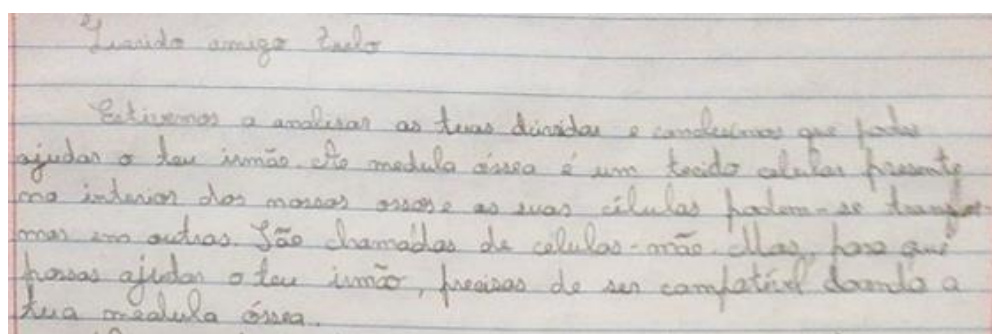 Querido amigo Zeulo
Estivemos a analisar as tuas dúvidas e concluímos que podes
ajudar o teu irmão. A medula óssea é um tecido celular presente
no interior dos nossos ossos e as suas células podem-se transfor-
mar em outras. São chamadas de células-mãe. Mas, para que
possas ajudar o teu irmão, precisas de ser compatível doando a
tua medula óssea.